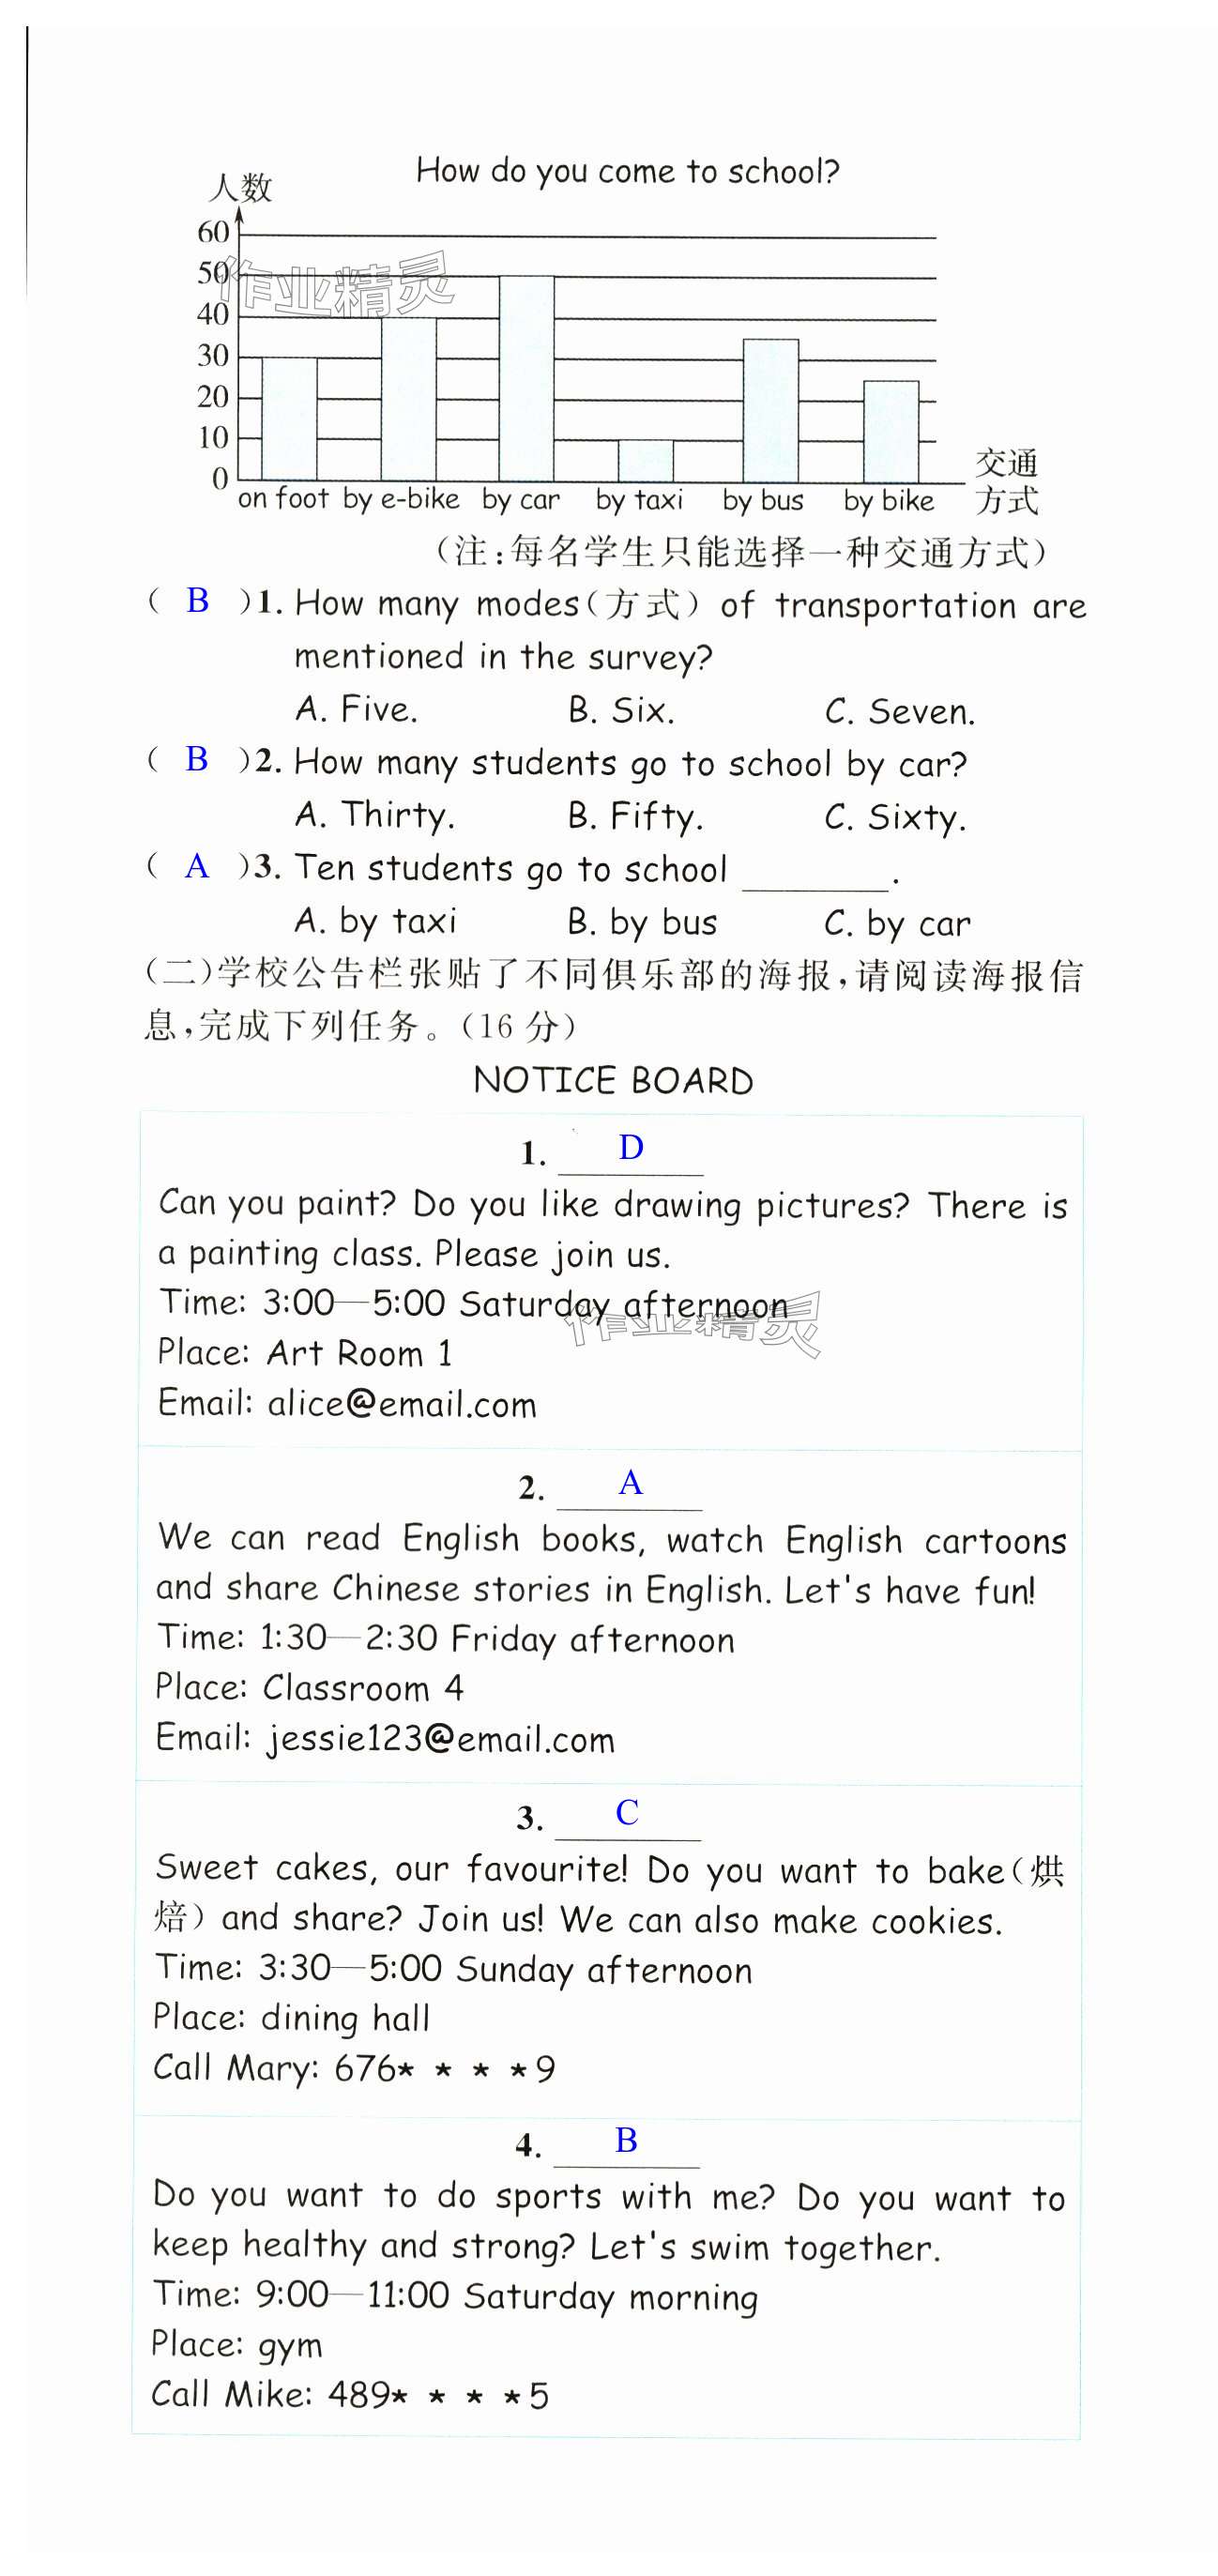 How do you come to school?
人数
60
50
40
30
20
10
0
on foot by e-bike by car by taxi by bus by bike
交通
方式
(注:每名学生只能选择一种交通方式)
( B )1. How many modes(方式) of transportation are
mentioned in the survey?
A. Five. B. Six. C. Seven.
( B )2. How many students go to school by car?
A. Thirty. B. Fifty. C. Sixty.
( A )3. Ten students go to school ________.
A. by taxi B. by bus C. by car
(二)学校公告栏张贴了不同俱乐部的海报,请阅读海报信
息,完成下列任务。(16 分)
NOTICE BOARD
1. D
Can you paint? Do you like drawing pictures? There is
a painting class. Please join us.
Time: 3:00—5:00 Saturday afternoon
Place: Art Room 1
Email: alice@email.com
2. A
We can read English books, watch English cartoons
and share Chinese stories in English. Let's have fun!
Time: 1:30—2:30 Friday afternoon
Place: Classroom 4
Email: jessie123@email.com
3. C
Sweet cakes, our favourite! Do you want to bake(烘
焙) and share? Join us! We can also make cookies.
Time: 3:30—5:00 Sunday afternoon
Place: dining hall
Call Mary: 676★ ★ ★ ★9
4. B
Do you want to do sports with me? Do you want to
keep healthy and strong? Let's swim together.
Time: 9:00—11:00 Saturday morning
Place: gym
Call Mike: 489★ ★ ★ ★5
作业精灵
作业精灵